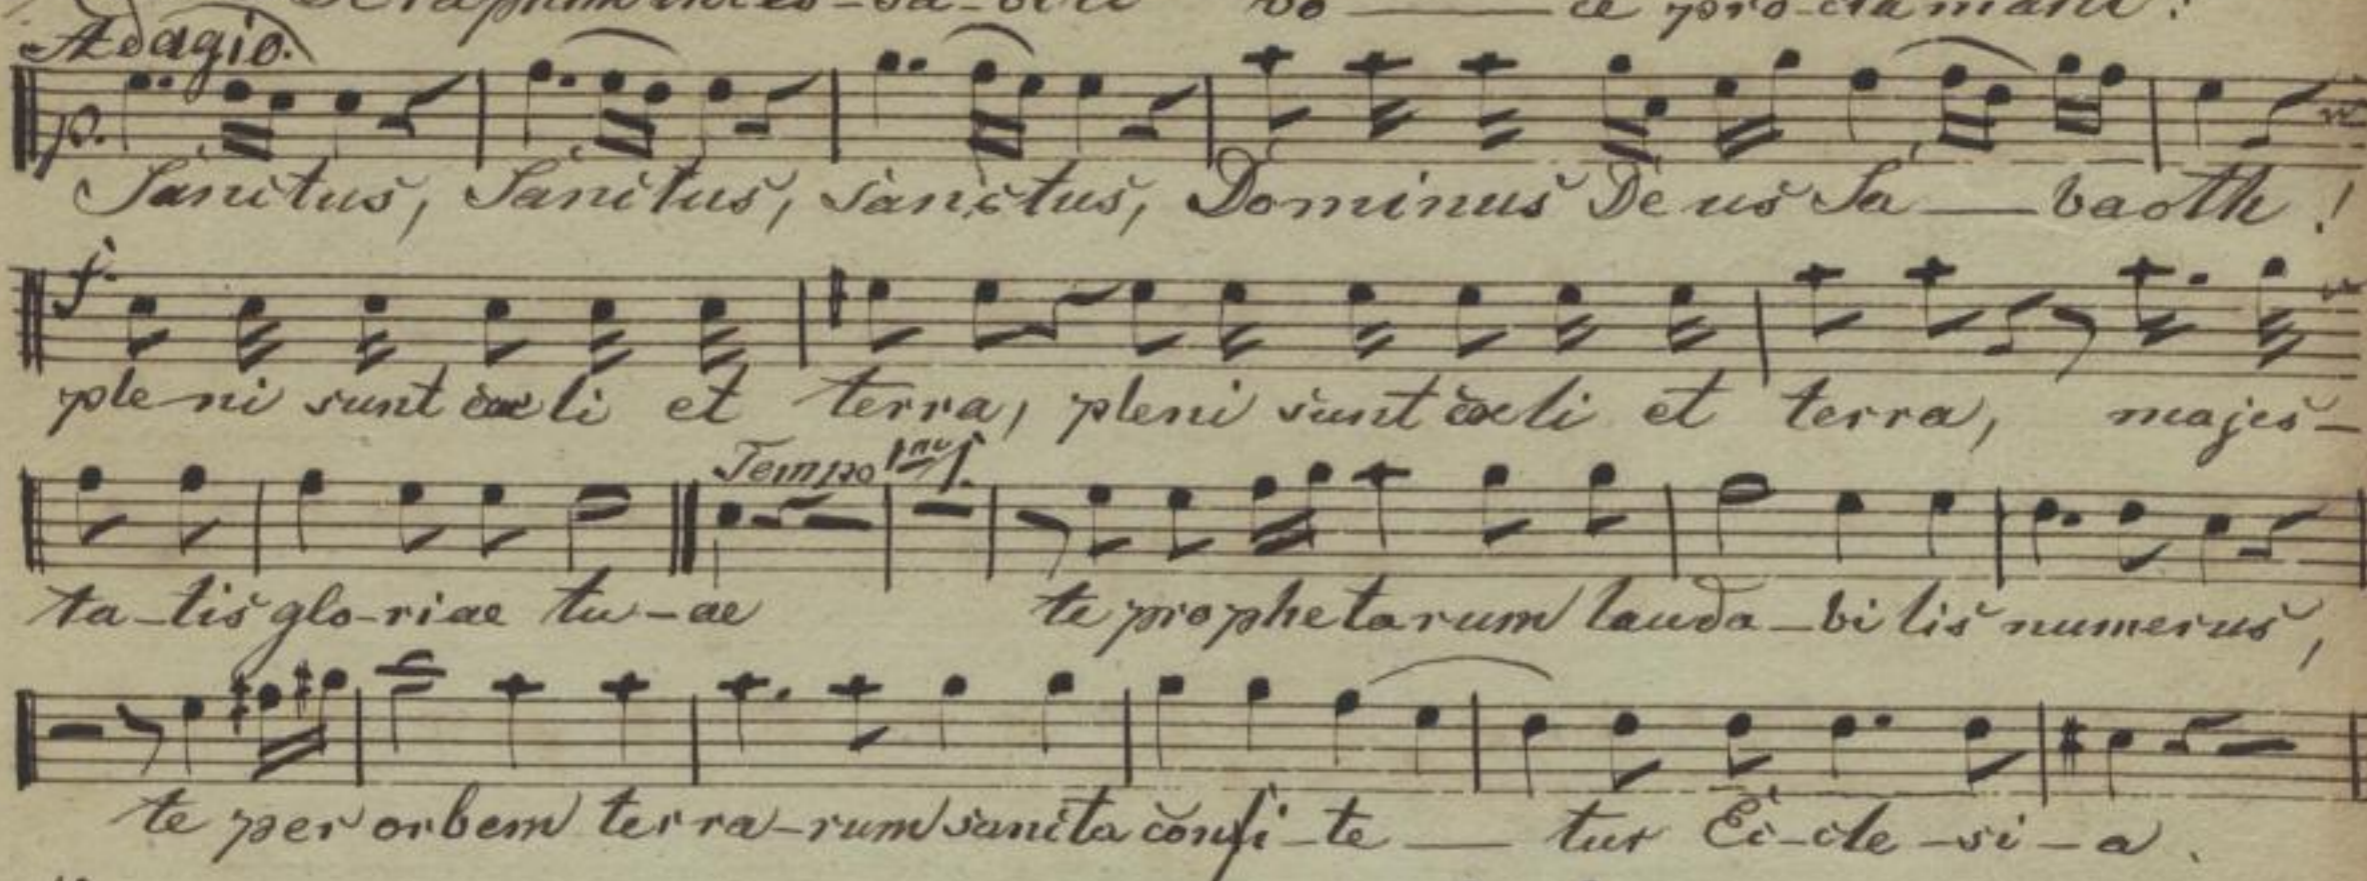 Seraphim inces-sa-bili vo — ce pro-clamant:
Adagio.
p.
Sanctus, Sanctus, sanctus, Dominus Deus Sa — baoth!
f.
pleni sunt coeli et terra, pleni sunt coeli et terra, majes-
Tempo 1mo f.
ta-tis glo-riae tu-ae te prophetarum lauda-bilis numerus,
te per orbem terra-rum sancta confi-te — tur Ec-cle-si-a.